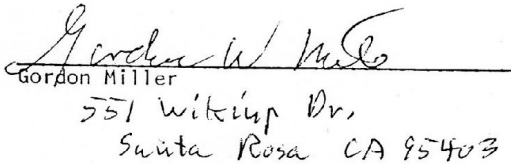 Gordon W Miller
Gordon Miller
551 Wikiup Dr,
Santa Rosa CA 95403